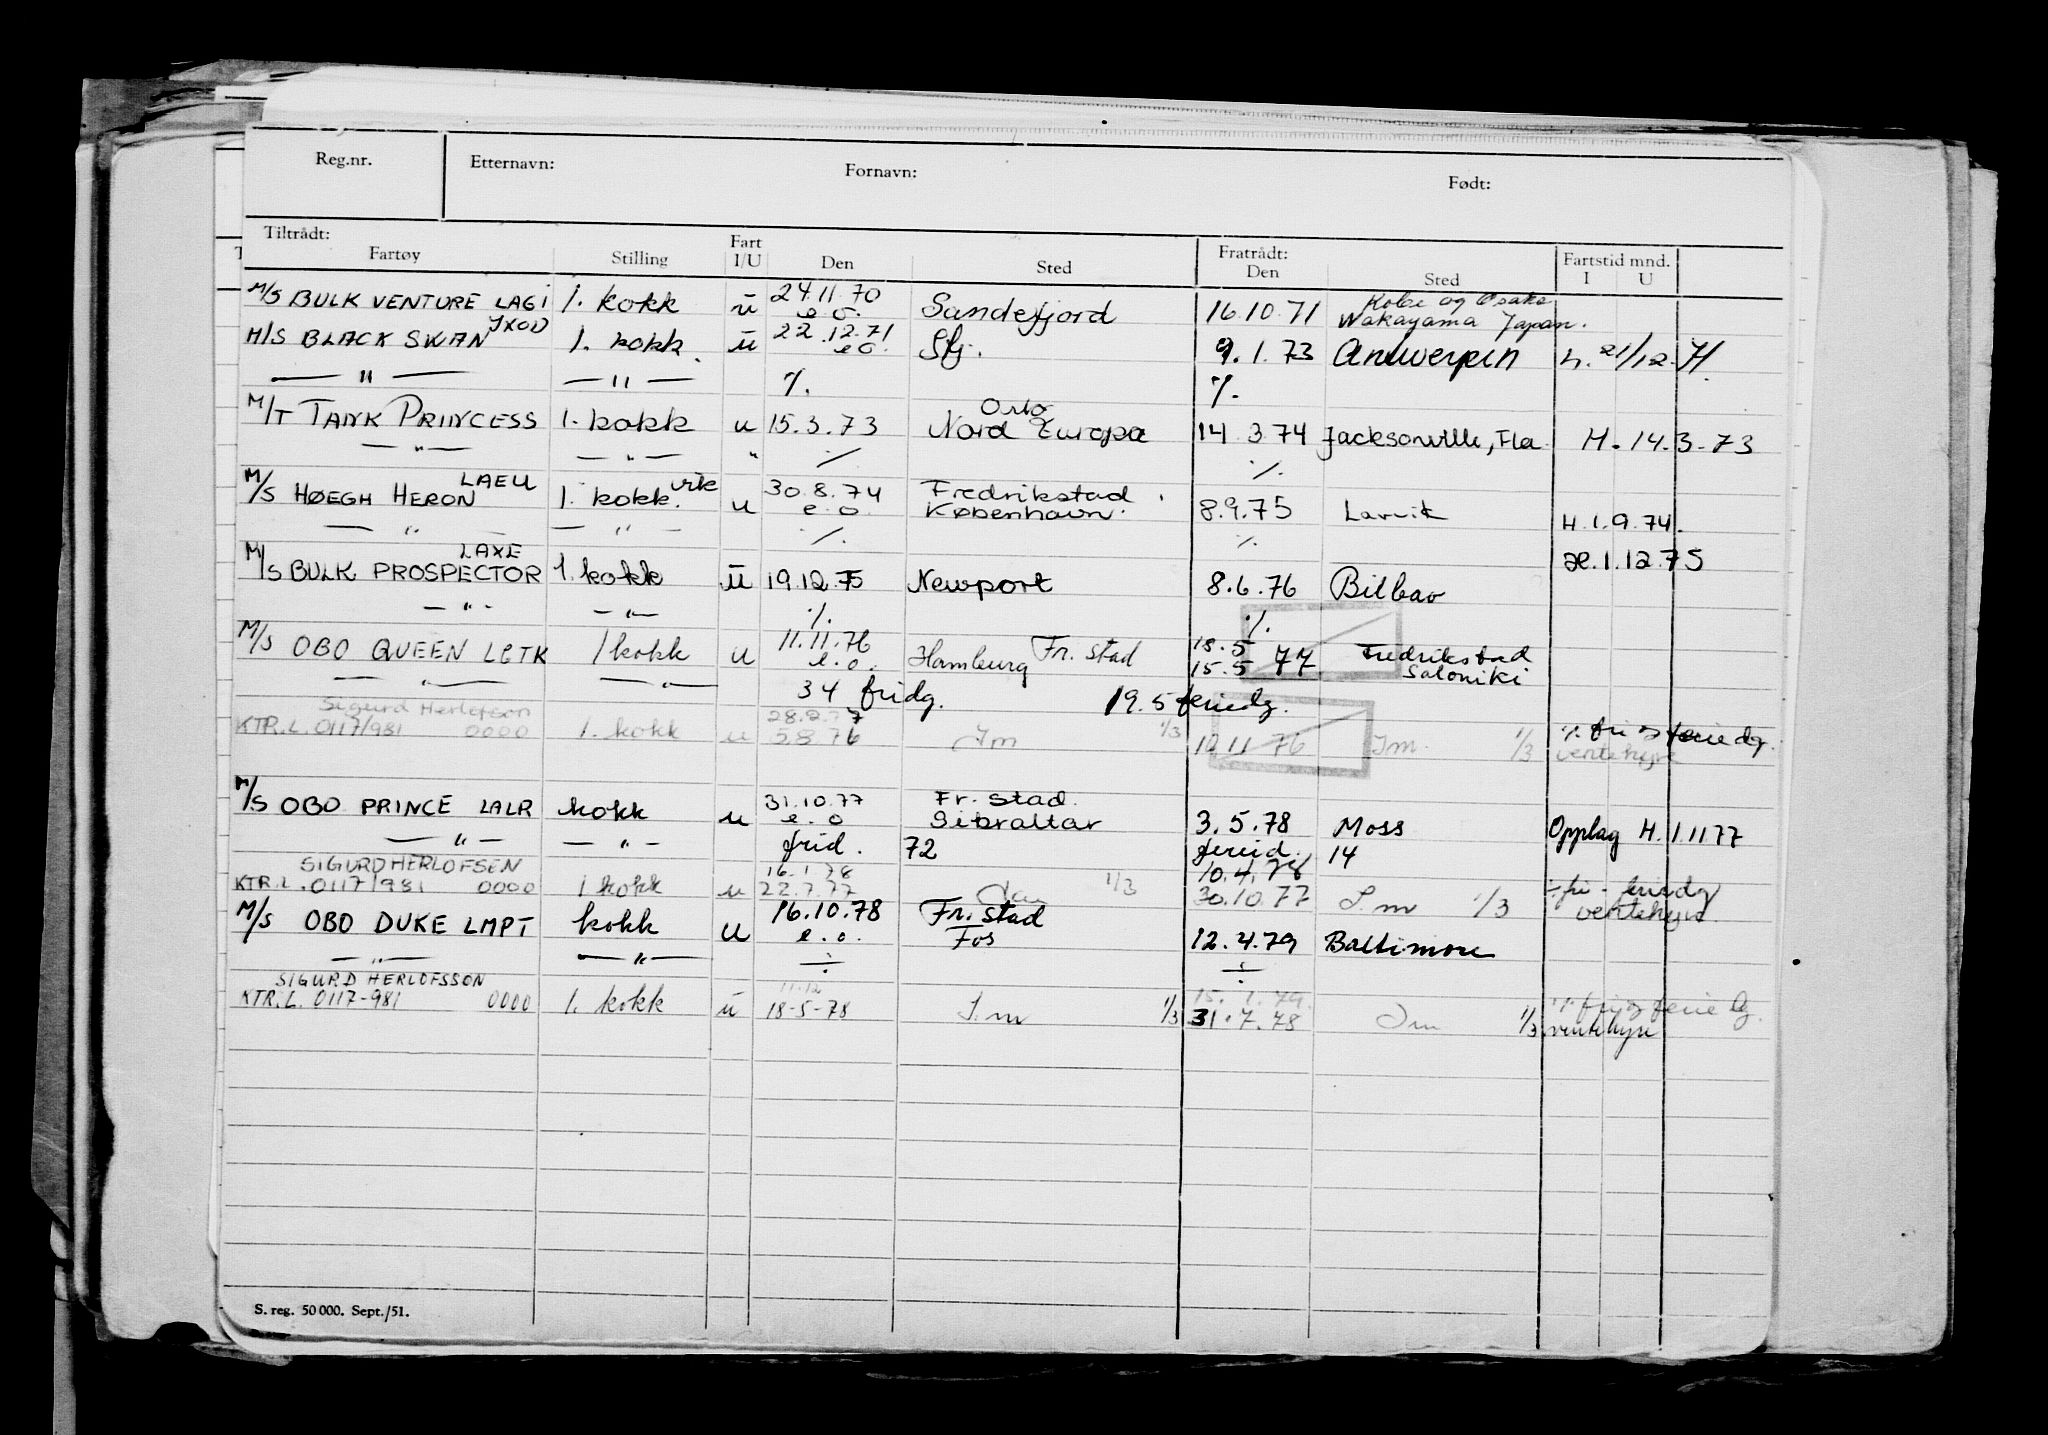 Reg.nr. Etternavn: Fornavn: Født:
Tiltrådt: Fratrådt:
Fartøy Stilling Fart I/U Den Sted Den Sted Fartstid mnd. I U
M/S BULK VENTURE LAGI 1. kokk ū 24.11.70 e.o. Sandefjord 16.10.71 Kobe og Osaka Wakayama Japan.
M/S BLACK SWAN JXOD 1. kokk. ū 22.12.71 e.o. Sfj. 9.1.73 Antwerpen h. 21/12-71.
— " — — " — %. %.
M/T TANK PRINCESS 1. kokk u 15.3.73 Oslo Nord Europa 14.3.74 Jacksonville, Fla. H. 14.3-73
— " — — " — " % %.
M/S HØEGH HERON LAEU 1. kokk. vik u 30.8.74 e.o. Fredrikstad København. 8.9.75 Larvik H.1.9.74.
— " — — " — %. %.
M/S BULK PROSPECTOR LAXE 1. kokk ū 19.12.75 Newport 8.6.76 Bilbao æ.1.12.75
— " — — " — %. %.
M/S OBO QUEEN LCTK 1 kokk u 11.11.76 e.o. Hamburg Fr.stad 18.5 15.5 77 Fredrikstad Saloniki
— " — — " — 34 fridg. 19.5 feriedg.
Sigurd Herlofson
KTR.L. 0117/981 0000 1. kokk u 28.2.77 5.8.76 Im 1/3 10.11.76 Im. 1/3 % fri og feriedg. ventehyre
M/S OBO PRINCE LALR kokk u 31.10.77 e.o Fr.stad. Gibraltar 3.5.78 Moss Opplag H.1.1177
— " — — " — frid. 72 feried. 14
SIGURD HERLOFSEN
KTR.L. 0117/981 0000 1 kokk u 16.1.78 22.7.77 1/3 10.4.78 30.10.77 I.m 1/3 ÷ fri - feriedg ventehyre
M/S OBO DUKE LMPT kokk u 16.10.78 e.o. Fr.stad Fos 12.4.79 Baltimore
— " — — " — ÷ ÷
SIGURD HERLOFSSON
KTR.L. 0117-981 0000 1. kokk ū 11.12 18-5-78 I.m 1/3 15.1.79 31.7.78 Im 1/3 % fri og ferie dg. ventehyre
S. reg. 50 000. Sept./51.